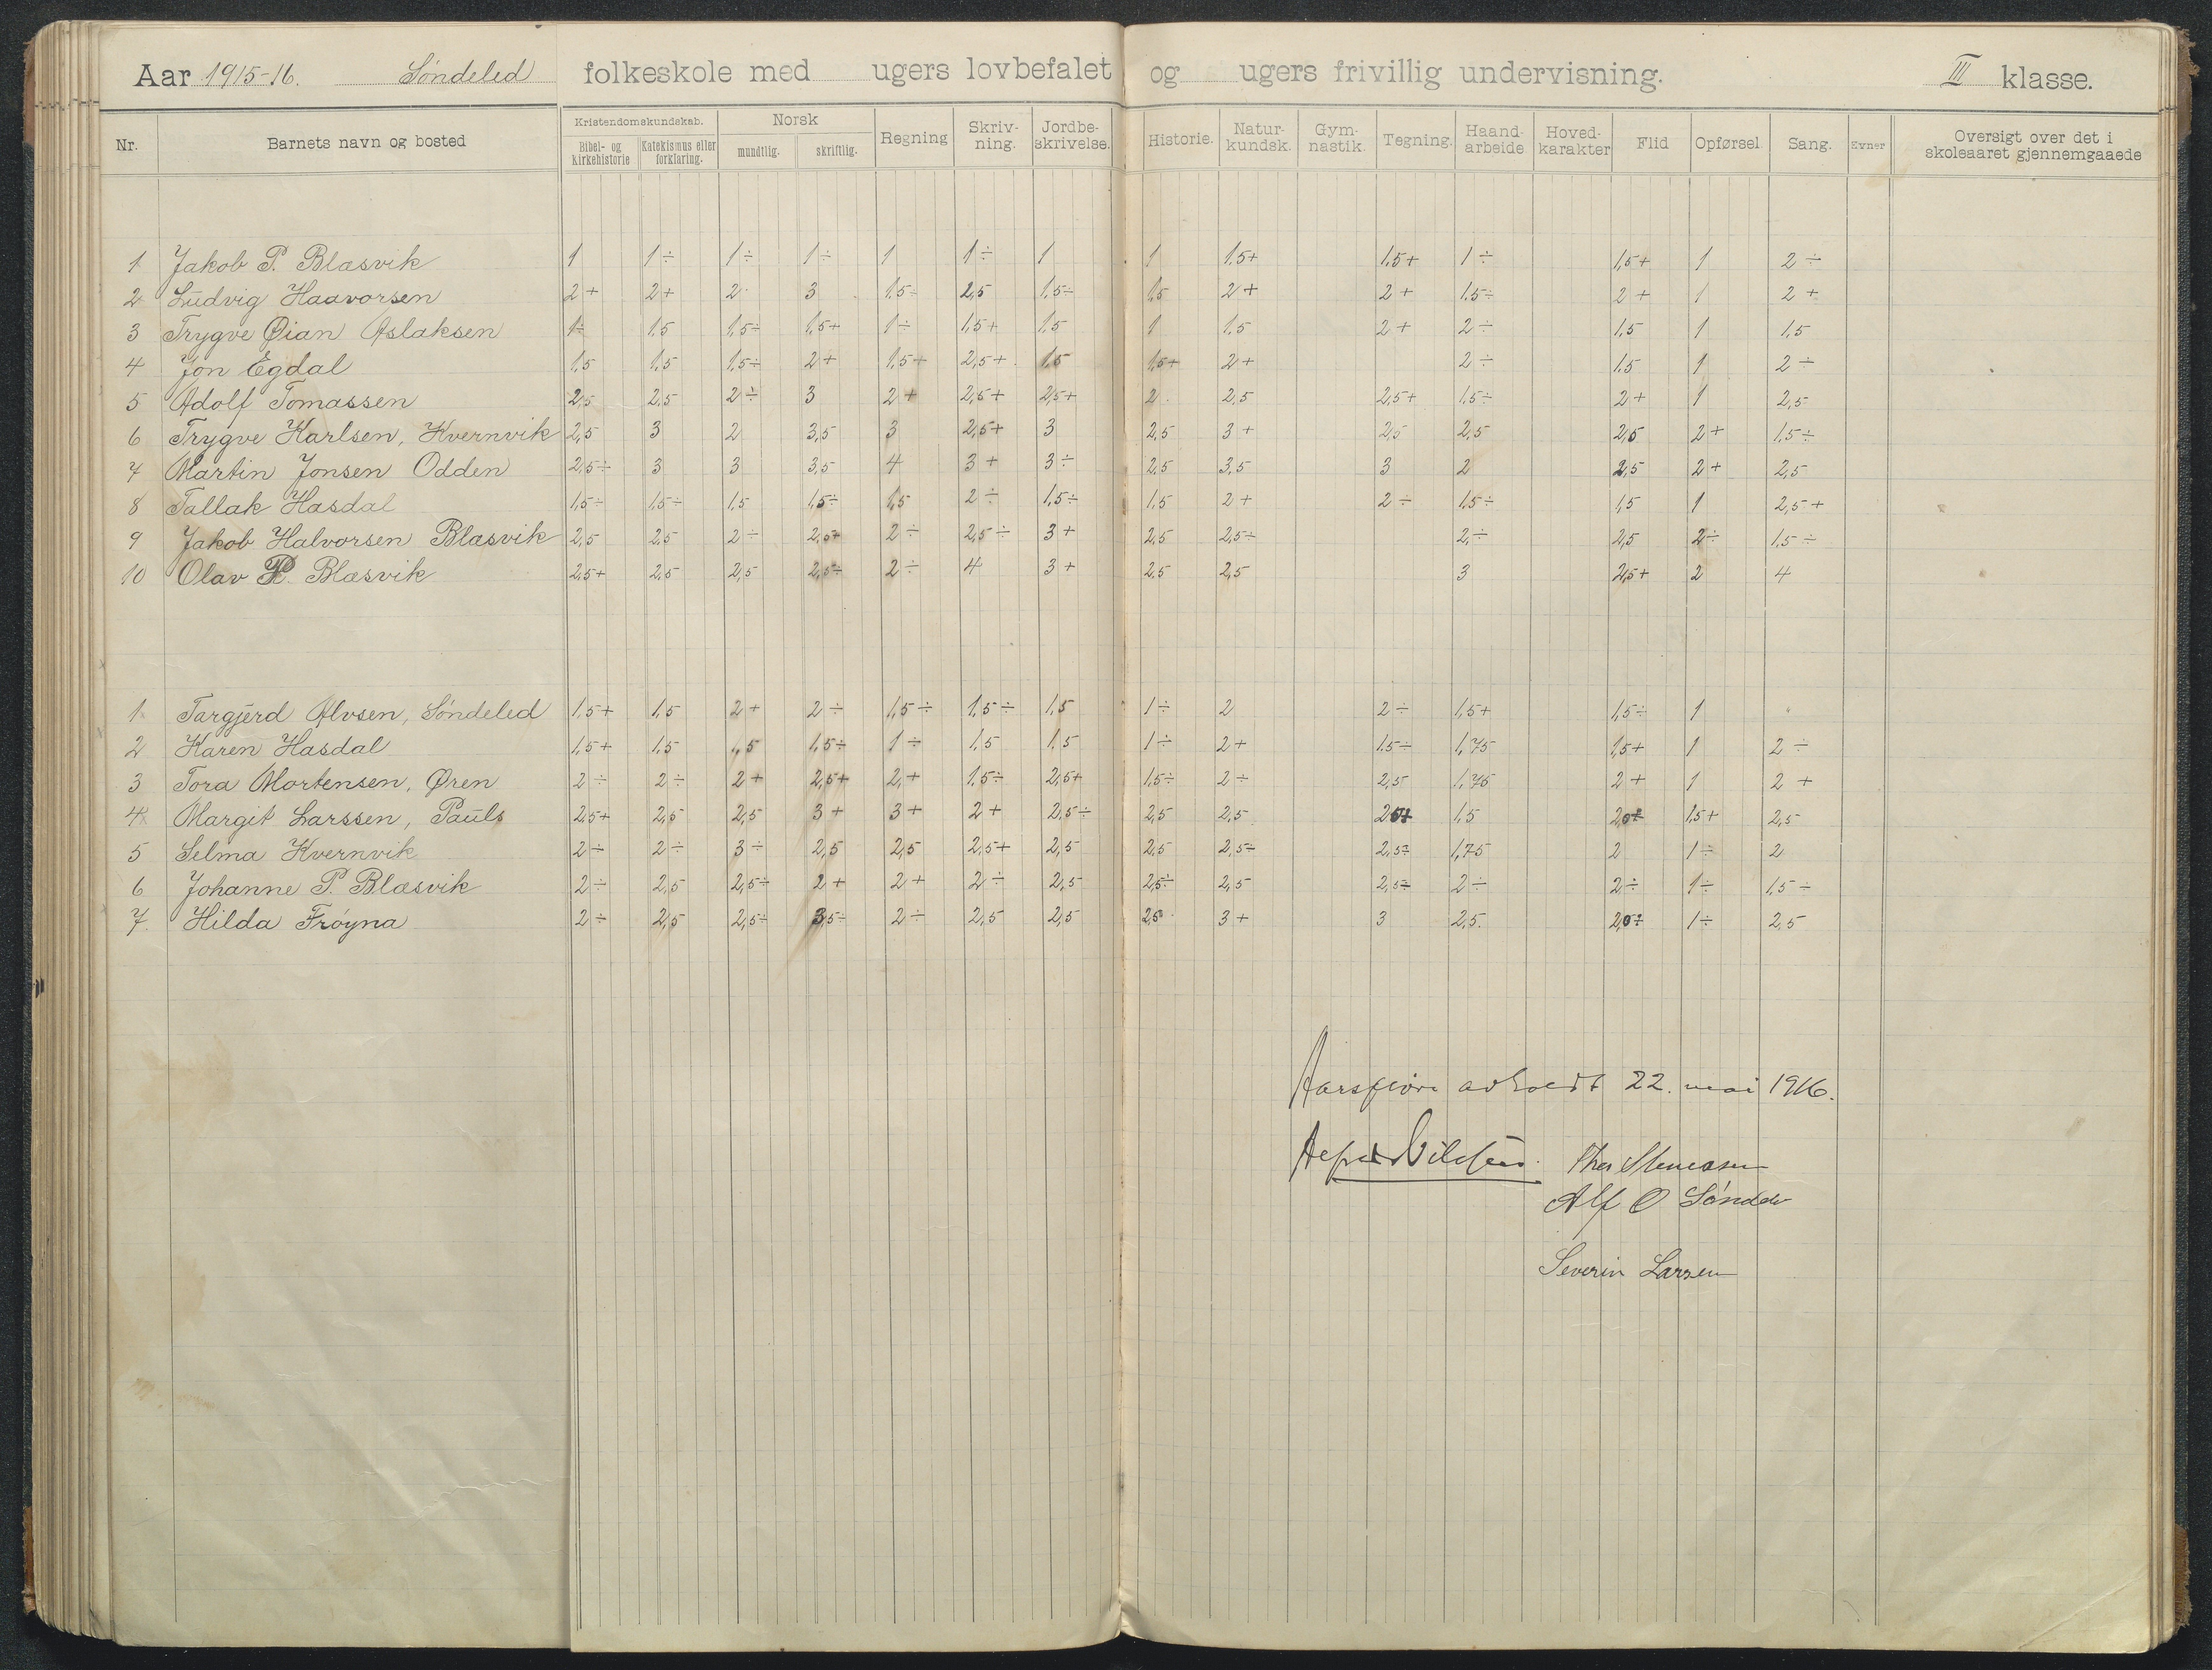 Aar 1915-16. Søndeled folkeskole med ugers lovbefalet og ugers frivillig undervisning. III klasse.
Nr. Barnets navn og bosted Kristendomskundskab. Bibel- og kirkehistorie Katekismus eller forklaring. Norsk mundtlig. skriftlig. Regning Skriv-ning. Jordbe-skrivelse. Historie. Natur-kundsk. Gym-nastik. Tegning. Haand-arbeide Hoved-karakter Flid Opførsel Sang. Evner Oversigt over det i skoleaaret gjennemgaaede
1 Jakob P. Blæsvik 1 1÷ 1÷ 1÷ 1 1÷ 1 1 1.5+ 1.5+ 1÷ 1,5+ 1 2÷
2 Ludvig Haavorsen 2+ 2+ 2 3 1,5÷ 2,5 1,5÷ 1,5 2+ 2+ 1.5÷ 2+ 1 2+
3 Trygve Øian Aslaksen 1÷ 1.5 1,5÷ 1,5+ 1÷ 1,5+ 1.5 1 1.5 2+ 2÷ 1.5 1 1,5
4 Jon Egdal 1,5 1,5 1,5÷ 2+ 1,5+ 2,5+ 1,5 1,5+ 2+ 2÷ 1.5 1 2÷
5 Adolf Tomassen 2,5 2,5 2÷ 3 2+ 2,5+ 2,5+ 2 2,5 2,5+ 1.5÷ 2+ 1 2,5
6 Trygve Karlsen, Kvernvik 2,5 3 2 3,5 3 2,5+ 3 2,5 3+ 2,5 2,5 2,5 2+ 1,5÷
7 Martin Jonsen Odden 2,5÷ 3 3 3,5 4 3+ 3÷ 2,5 3,5 3 2 2,5 2+ 2,5
8 Tallak Hasdal 1,5÷ 1,5÷ 1,5 1,5÷ 1,5 2÷ 1,5÷ 1,5 2+ 2÷ 1,5÷ 1,5 1 2,5+
9 Jakob Halvorsen Blæsvik 2,5 2,5 2÷ 2,5+ 2÷ 2,5÷ 3+ 2,5 2,5÷ 2÷ 2,5 2÷ 1,5÷
10 Olav P. Blæsvik 2,5+ 2,5 2,5 2,5÷ 2÷ 4 3+ 2,5 2,5 3 2,5+ 2 4
1 Targjerd Alvsen, Søndeled 1,5+ 1,5 2+ 2÷ 1,5÷ 1.5÷ 1,5 1÷ 2 2÷ 1,5+ 1,5÷ 1 "
2 Karen Hasdal 1,5+ 1,5 1,5 1,5÷ 1÷ 1,5 1,5 1÷ 2+ 1.5÷ 1,75 1,5+ 1 2÷
3 Tora Mortensen, Øren 2÷ 2÷ 2+ 2,5+ 2+ 1.5÷ 2,5+ 1.5÷ 2÷ 2,5 1,75 2+ 1 2+
4 Margit Larssen, Pauls 2,5+ 2,5 2,5 3+ 3+ 2+ 2,5÷ 2,5 2,5 1,5 1,5+ 2,5
5 Selma Kvernvik 2÷ 2÷ 3÷ 2,5 2,5 2,5+ 2,5 2,5 2,5÷ 2,5÷ 1,75 2 1÷ 2
6 Johanne P. Blæsvik 2÷ 2,5 2,5÷ 2+ 2+ 2÷ 2,5 2,5÷ 2,5 2,5÷ 2÷ 2÷ 1÷ 1,5÷
7. Hilda Frøyna 2÷ 2,5 2,5÷ 3,5÷ 2÷ 2,5 2,5 2,5 3+ 3 2,5. 1÷ 2,5
Aarsprøve avholdt 22. mai 1916.
Alf O
Severin Larsen